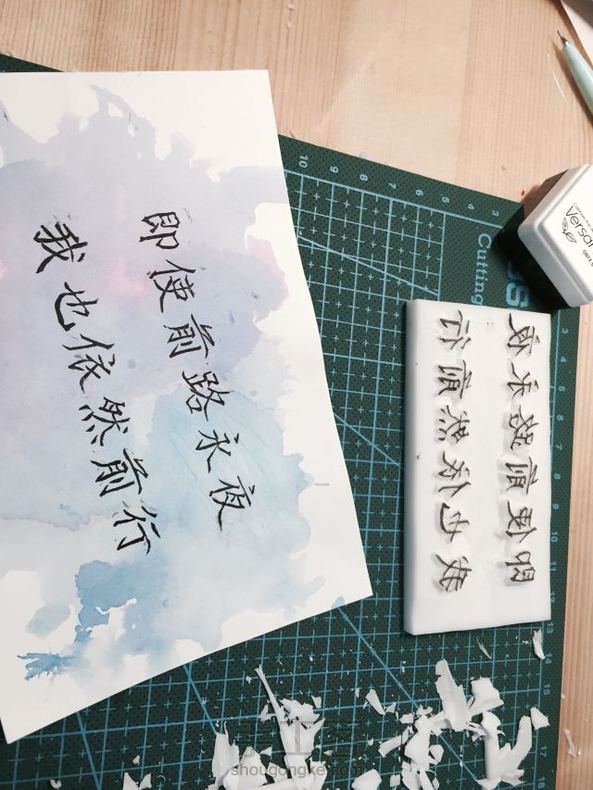 即使前路永夜
我也依然前行
Cutting
Versa
shougongke.com